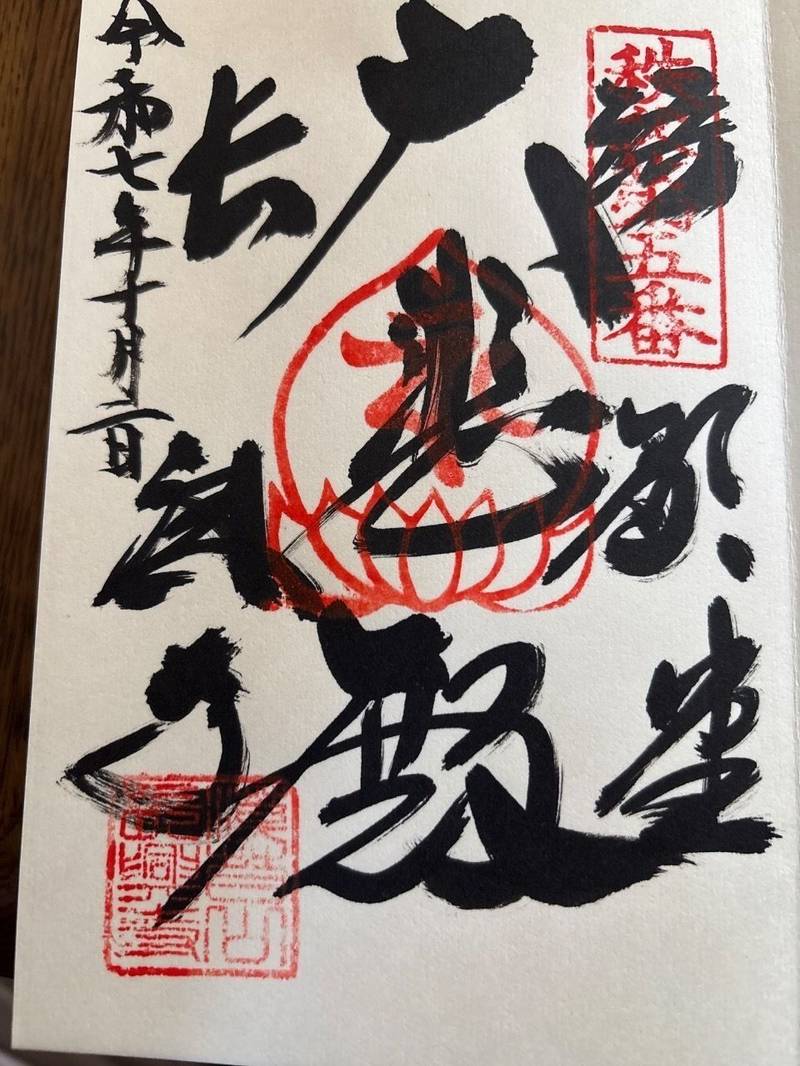 秩父第五番
語歌堂
大悲殿
長興寺
令和七年十月二日